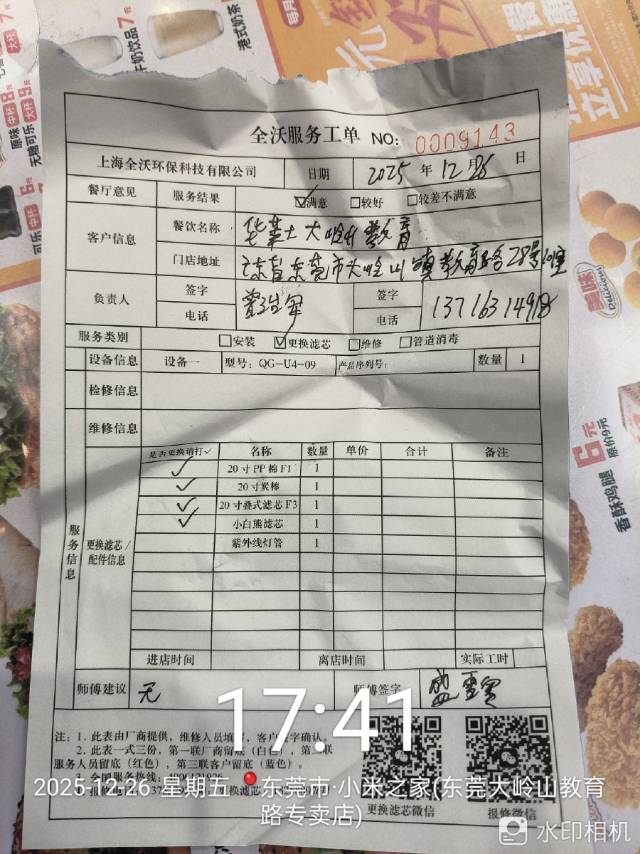 全沃服务工单 NO: 0009143
上海全沃环保科技有限公司 日期 2025 年 12月 26 日
餐厅意见 服务结果 ☑满意 □较好 □较差不满意
客户信息 餐饮名称 华莱士大岭山教育
门店地址 广东省东莞市大岭山镇教育路28号
负责人 签字 签字
电话 电话
服务类别 □安装 ☑更换滤芯 □维修 □管道消毒
设备信息 设备一 型号: QG-U4-09 产品序列号: 数量 1
检修信息
维修信息
服务信息
更换滤芯/配件信息
是否更换请打✓ 名称 数量 单价 合计 备注
✓ 20寸PP棉F1 1
✓ 20寸炭棒 1
✓ 20寸叠式滤芯F3 1
✓ 小白熊滤芯 1
紫外线灯管 1
进店时间 离店时间 实际工时
师傅建议 无 师傅签字
注: 1. 此表由厂商提供, 维修人员填写, 客户签字确认。
2. 此表一式三份, 第一联厂商留底(白色), 第二联
服务人员留底(红色), 第三联客户留底(蓝色)。
3. 全国服务热线:
更换滤芯微信 报修微信
17:41
2025-12-26 星期五 东莞市·小米之家(东莞大岭山教育
路专卖店)
水印相机
6元
原价9元
香酥鸡腿
美味
立享优惠
港式奶茶